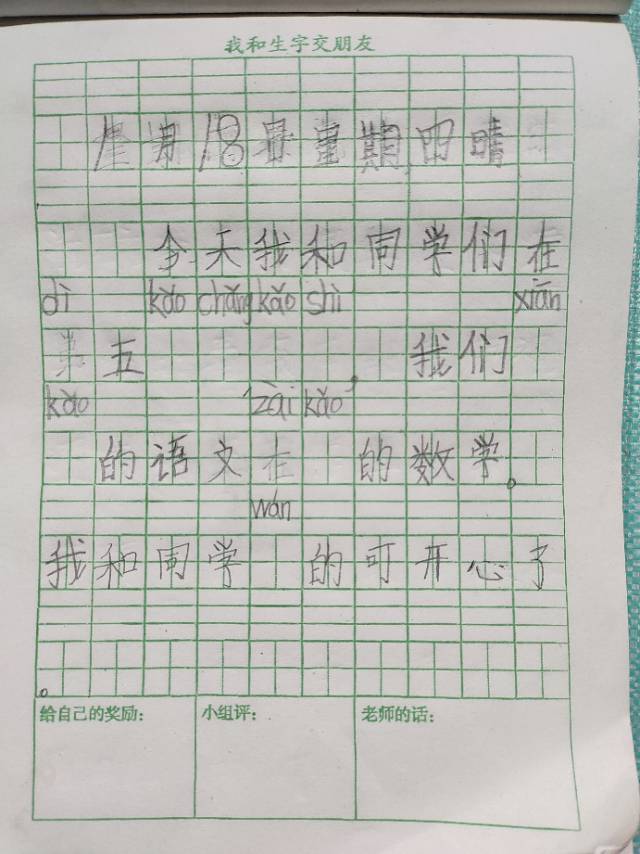 我和生字交朋友
1月18日星期四晴
今天我和同学们在
dì kǎo chǎng kǎo shì xiān
第五 我们
kǎo zài kǎo,
的语文在 的数学。
wán
我和同学 的可开心了
。
给自己的奖励: 小组评: 老师的话: